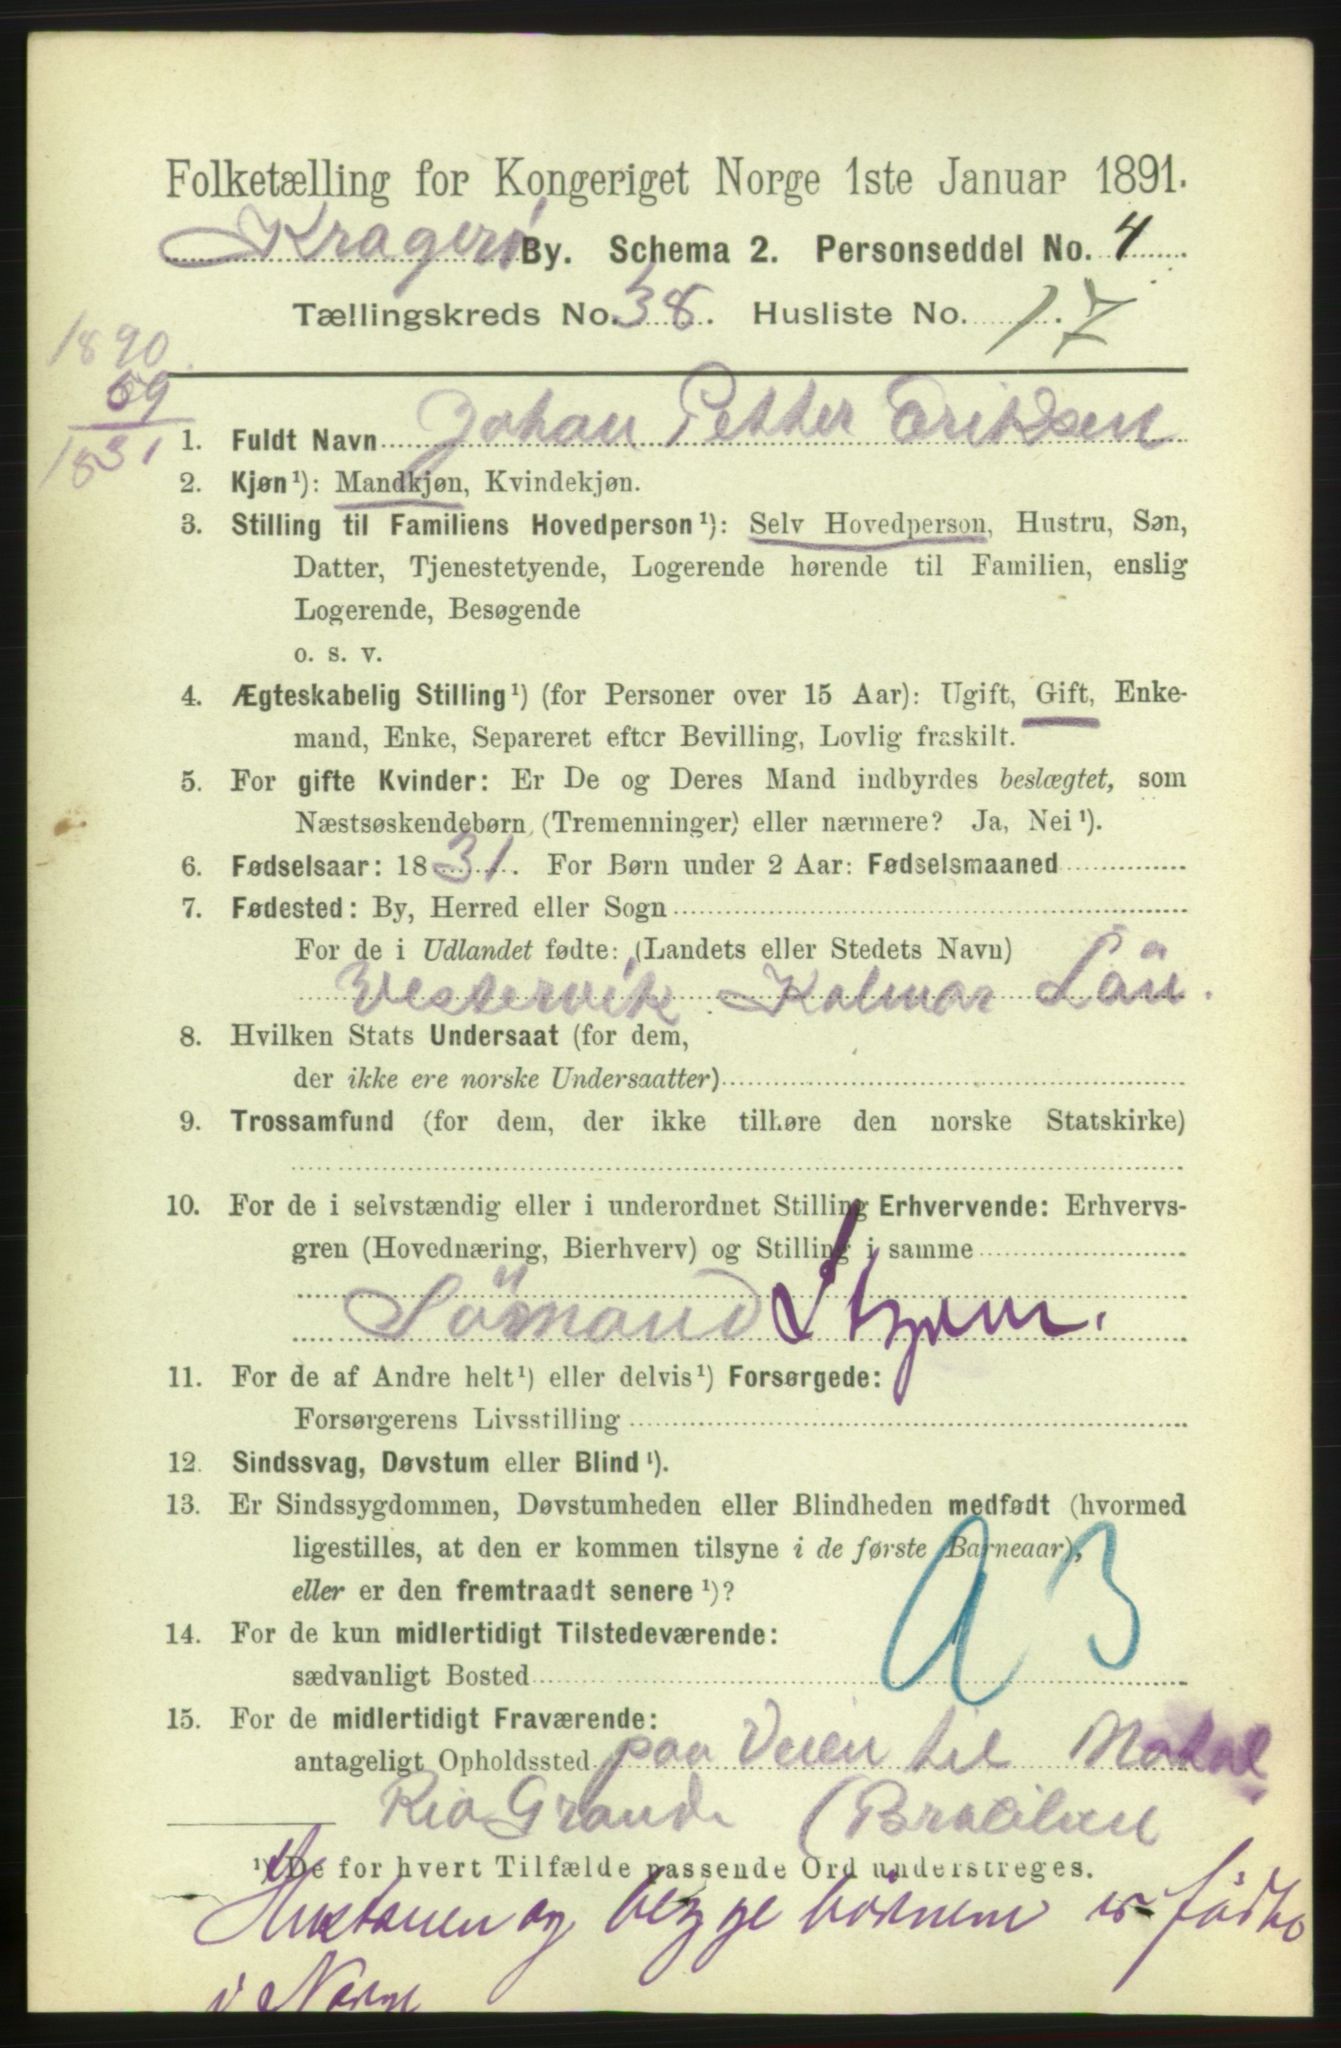 Folketælling for Kongeriget Norge 1ste Januar 1891.
Kragerø By. Schema 2. Personseddel No. 4
Tællingskreds No. 38. Husliste No. 17
1890
59
1831
1. Fuldt Navn Johan Petter Eriksen
2. Kjøn¹): Mandkjøn, Kvindekjøn.
3. Stilling til Familiens Hovedperson¹): Selv Hovedperson, Hustru, Søn,
Datter, Tjenestetyende, Logerende hørende til Familien, enslig
Logerende, Besøgende
o. s. v.
4. Ægteskabelig Stilling¹) (for Personer over 15 Aar): Ugift, Gift, Enke-
mand, Enke, Separeret efter Bevilling, Lovlig fraskilt.
5. For gifte Kvinder: Er De og Deres Mand indbyrdes beslægtet, som
Næstsøskendebørn (Tremenninger) eller nærmere? Ja, Nei¹).
6. Fødselsaar: 1831. For Børn under 2 Aar: Fødselsmaaned
7. Fødested: By, Herred eller Sogn
For de i Udlandet fødte: (Landets eller Stedets Navn)
Vestervik Kalmar Län.
8. Hvilken Stats Undersaat (for dem,
der ikke ere norske Undersaatter)
9. Trossamfund (for dem, der ikke tilhøre den norske Statskirke)
10. For de i selvstændig eller i underordnet Stilling Erhvervende: Erhvervs-
gren (Hovednæring, Bierhverv) og Stilling i samme
Sömand
11. For de af Andre helt¹) eller delvis¹) Forsørgede:
Forsørgerens Livsstilling
12. Sindssvag, Døvstum eller Blind¹).
13. Er Sindssygdommen, Døvstumheden eller Blindheden medfødt (hvormed
ligestilles, at den er kommen tilsyne i de første Barneaar),
eller er den fremtraadt senere¹)?
14. For de kun midlertidigt Tilstedeværende:
sædvanligt Bosted
15. For de midlertidigt Fraværende:
antageligt Opholdssted paa Veien til Natal
Rio Grande (Brasilien
¹) De for hvert Tilfælde passende Ord understreges.
Hustruen og begge börnene er födte
i Norge